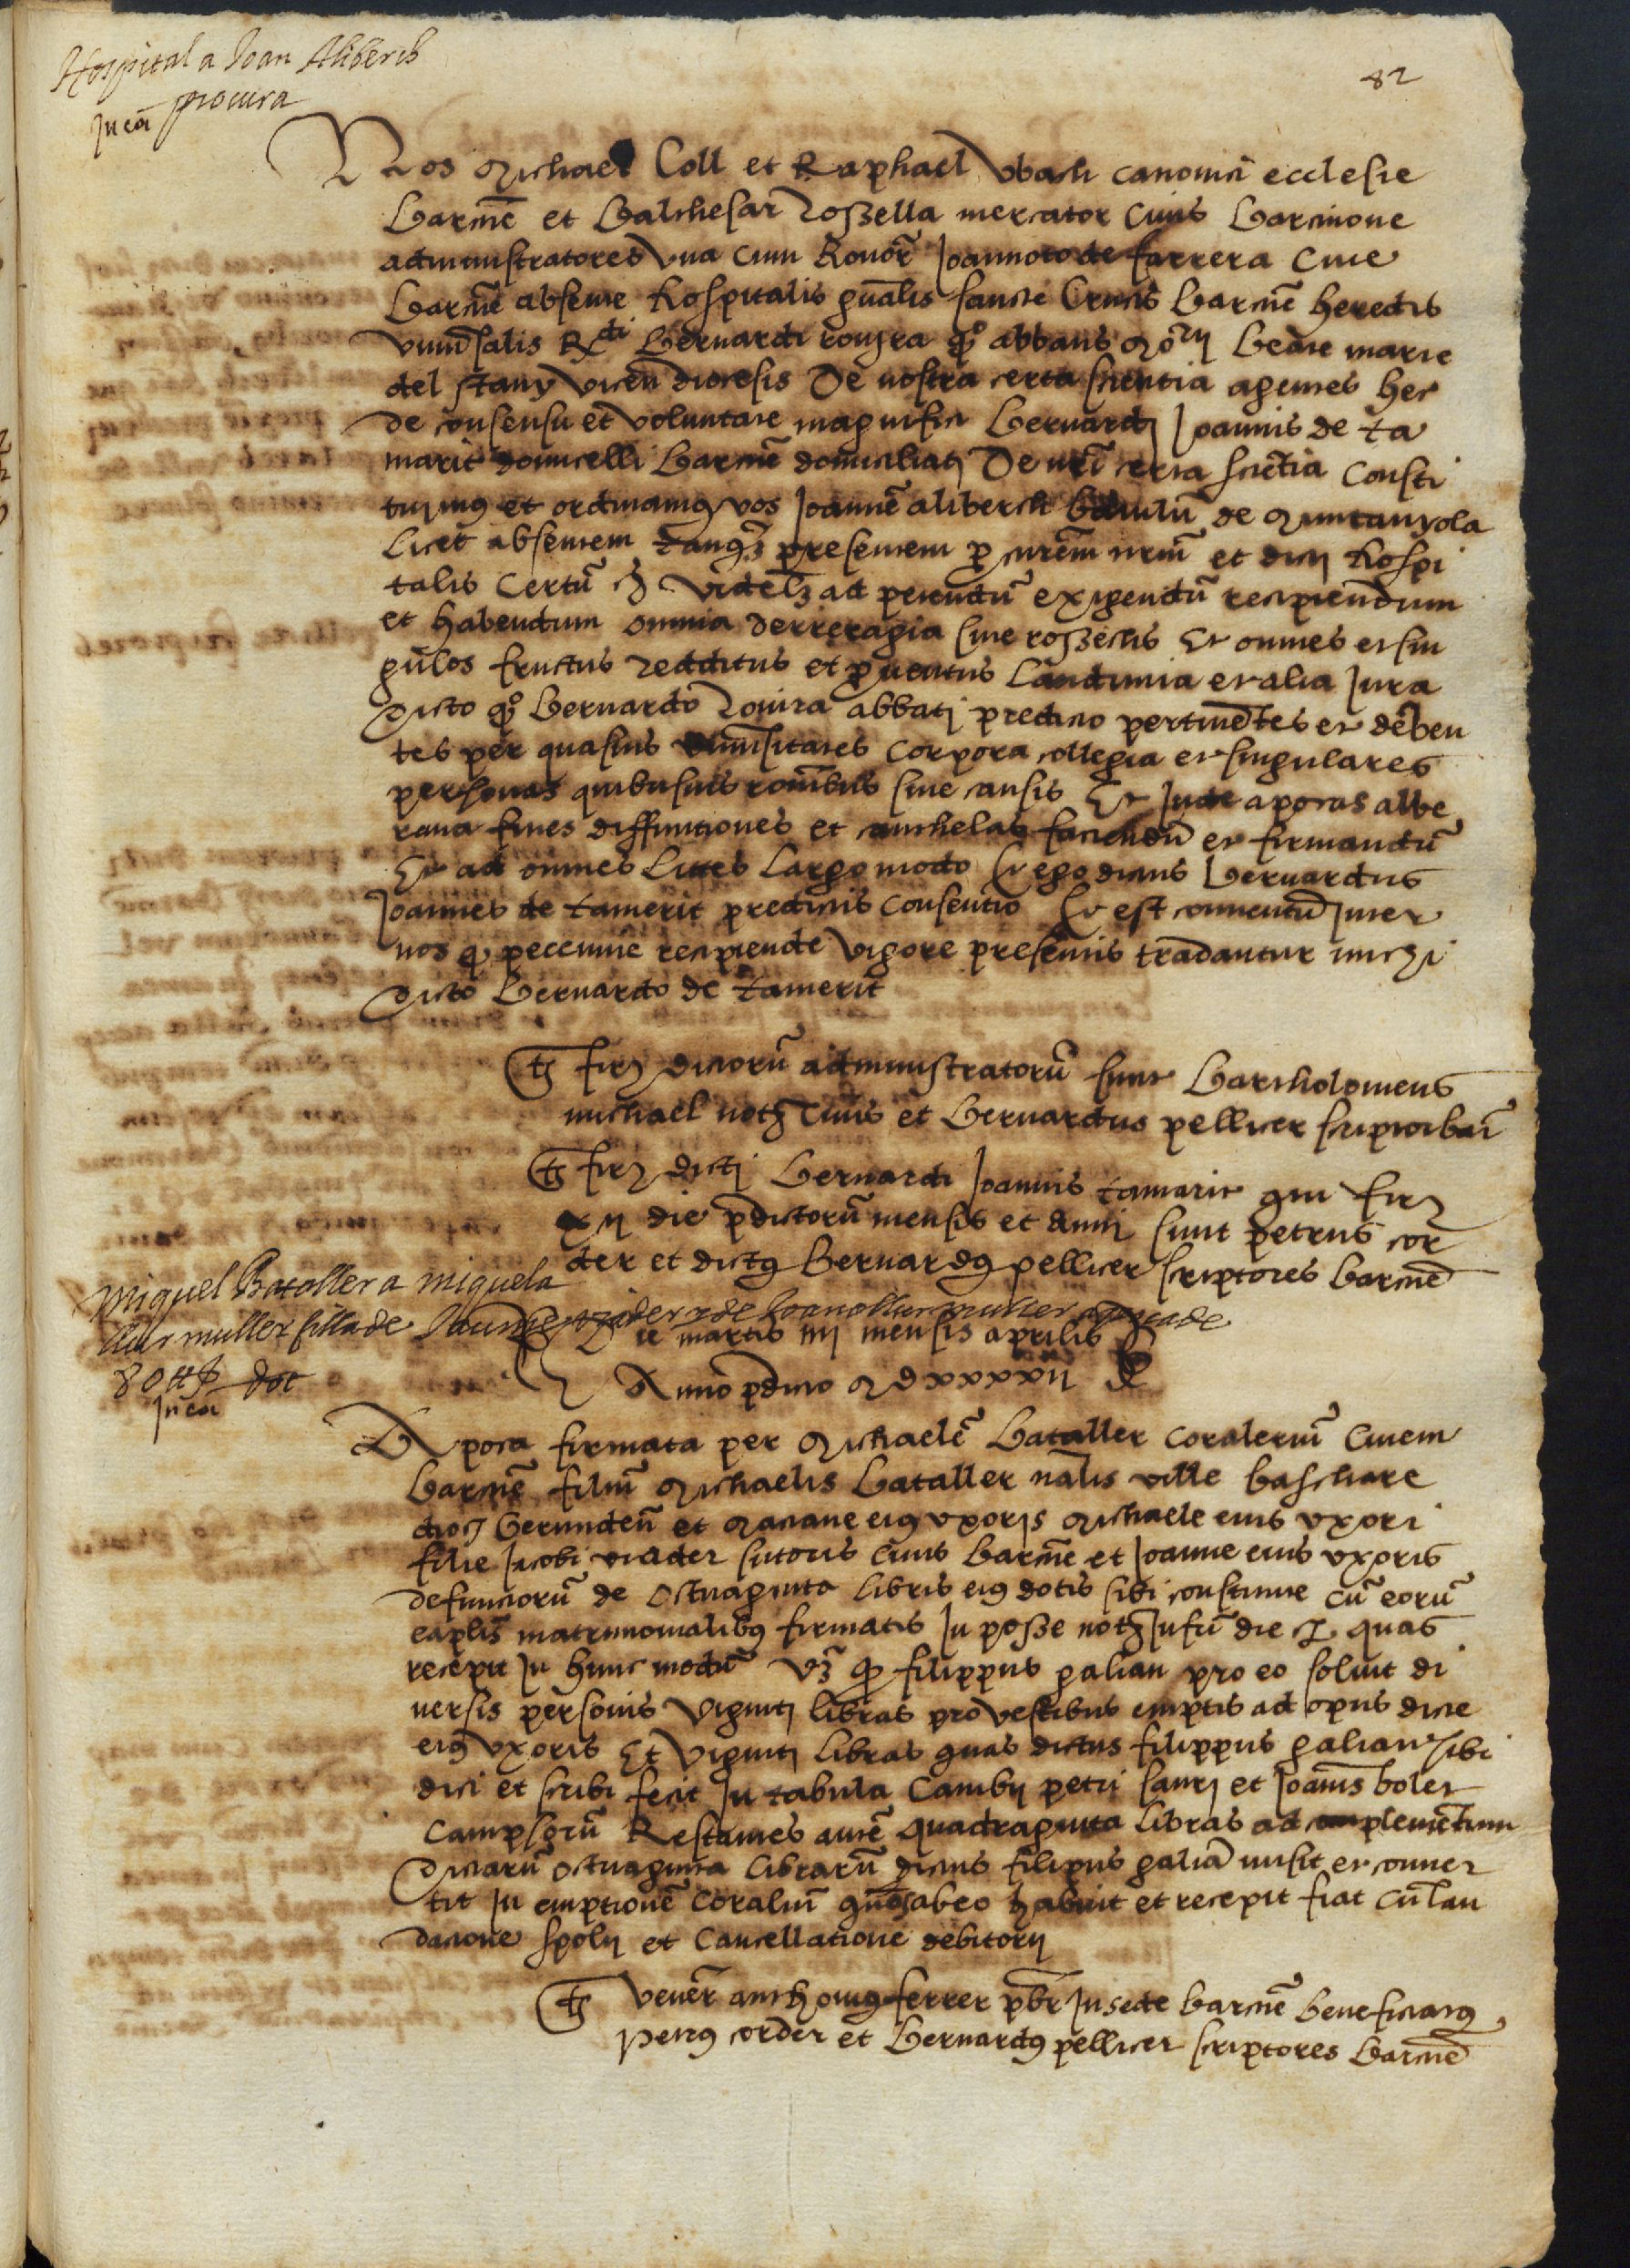 Hospital a Joan Aliberch
procura
In ca
82
Nos Michael Coll et Raphael Vbach canonici ecclesie
barcñe et Balthesar Rossella mercator civis Barcinone
administratores vna cum honor Joannoto de farrera cive
Barcñe absente hospitalis gñalis sancte Crucis Barcñe heredis
vniuersalis Rdi Bernardi rovira qº abbatis Mõrii beate marie
del stany vicen diocesis De nostra certa scientia agentes hec
de consensu et voluntate magnifici Bernardi Joannis de ta
marit domicelli Barcñe domiciliati De nrã certa sciẽtia consti
tuimus et ordinamus vos Joannẽ aliberch baiulũ de Muntanyola
licet absentem tanqz presentem procurẽm nrũm et dicti hospi
talis certũ videlz ad petendũ exigendũ recipiendum
et habendum omnia derreragia sive rossechs Et omnes et sin
gulos fructus redditus et proventus laudimia et alia Jura
dicto qº Bernardo rovira abbati predicto pertinẽtes et deben
tes per quasvis vniũsitates corpora collegia et singulares
personas quibusvis rõnibus sive causis Et Inde apocas albe
rana fines diffinitiones et canthelas faciendũ et firmandũ
Et ad omnes lites largo modo Et ego dictus Bernardus
Joannes de tamerit predictis consentio Et est conventũ Inter
nos q peccunie recipiende vigore presentis tradantur michi
dicto Bernardo de tamerit
ts firz dictorũ administratorũ sunt Bartholomeus
michael notz civis et Bernardus pellicer scriptor barc
ts firz dicti Bernardi Joannis tamarit qui firz
xii die pdictorũ mensis et anni sunt petrus cor
der et dictus Bernardus pellicer scriptores barcñe
Miquel Bataller a miquela
sa muller filla de Jaume viader y de Joana sa muller apoca de
80 ℔ dot
In ca
Die martis iiii mensis aprilis
Anno pdicto MDxxxxii
Apoca firmata per Michaelẽ Bataller coralerium civem
Barcñe filiũ Michaelis Bataller nãlis ville baschare
dioc Gerundeñ et eius vxoris Michaele eius vxori
filie Jacobi viader sutoris civis barcñe et Joanne eius vxoris
defunctorũ de octuaginta libris eius dotis sibi constitute cũ eorũ
caplis matrimonialibus firmatis In posse notz Infũ die quas
recepit In hunc modũ vz q filippus galian pro eo solvit di
versis personis viginti libras pro vestibus emptis ad opus dicte
eius vxoris Et viginti libras quas dictus filippus galian sibi
dici et scribi fecit In tabula cambii petri sanrj et Joanis boler
campsorũ Restantes autẽ quadraginta libras ad complemẽtum
dictarũ octuaginta librarũ dictus filipus galiã misit et conver
tit In emptionẽ coraliũ quos ab eo habuit et recepit fiat cũ lau
dacione spolii et cancellatione debitorii
ts vener anthonius ferrer pbr In sede barcñe beneficiatus
petrus corder et Bernardus pellicer scriptores barcñe